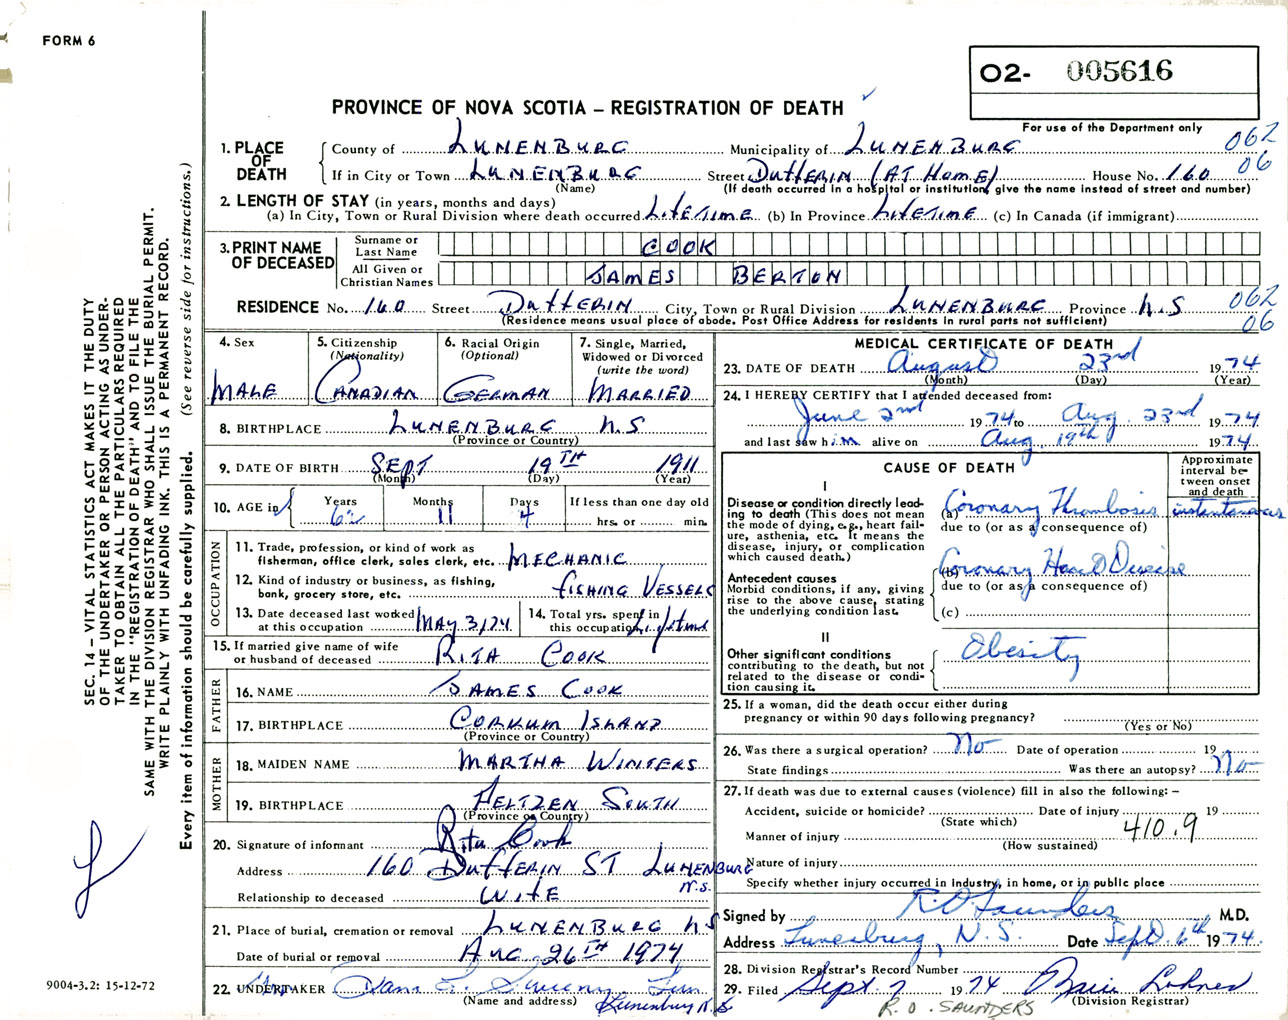 FORM 6
O2- 005616
PROVINCE OF NOVA SCOTIA – REGISTRATION OF DEATH
For use of the Department only
1. PLACE OF DEATH
County of LUNENBURG Municipality of LUNENBURG 062
If in City or Town LUNENBURG Street DUFFERIN (AT HOME) House No. 160 06
(Name) (If death occurred in a hospital or institution, give the name instead of street and number)
2. LENGTH OF STAY (in years, months and days)
(a) In City, Town or Rural Division where death occurred LIFETIME (b) In Province LIFETIME (c) In Canada (if immigrant)
3. PRINT NAME OF DECEASED
Surname or Last Name COOK
All Given or Christian Names JAMES BERTON
RESIDENCE No. 160 Street DUFFERIN City, Town or Rural Division LUNENBURG Province N.S 062
(Residence means usual place of abode. Post Office Address for residents in rural parts not sufficient) 06
4. Sex MALE
5. Citizenship (Nationality) CANADIAN
6. Racial Origin (Optional) GERMAN
7. Single, Married, Widowed or Divorced (write the word) MARRIED
8. BIRTHPLACE LUNENBURG N.S
(Province or Country)
9. DATE OF BIRTH SEPT 19TH 1911
(Month) (Day) (Year)
10. AGE in Years 62 Months 11 Days 4 If less than one day old hrs. or min.
OCCUPATION
11. Trade, profession, or kind of work as fisherman, office clerk, sales clerk, etc. MECHANIC
12. Kind of industry or business, as fishing, bank, grocery store, etc. FISHING VESSELS
13. Date deceased last worked at this occupation MAY 3/74
14. Total yrs. spent in this occupation Lifetime
15. If married give name of wife or husband of deceased RITA COOK
FATHER
16. NAME JAMES COOK
17. BIRTHPLACE CORKUM ISLAND
(Province or Country)
MOTHER
18. MAIDEN NAME MARTHA WINTERS
19. BIRTHPLACE FELTZEN SOUTH
(Province or Country)
20. Signature of informant Rita Cook
Address 160 DUFFERIN ST LUNENBURG N.S.
Relationship to deceased WIFE
21. Place of burial, cremation or removal LUNENBURG N.S
Date of burial or removal AUG 26TH 1974
22. UNDERTAKER
(Name and address) Lunenburg N.S
MEDICAL CERTIFICATE OF DEATH
23. DATE OF DEATH August 23rd 1974
(Month) (Day) (Year)
24. I HEREBY CERTIFY that I attended deceased from:
June 2nd 1974 to Aug. 23rd 1974
and last saw him alive on Aug. 19th 1974
CAUSE OF DEATH
Approximate interval between onset and death
I
Disease or condition directly leading to death (This does not mean the mode of dying, e.g., heart failure, asthenia, etc. It means the disease, injury, or complication which caused death.)
(a) Coronary Thrombosis instantaneous
due to (or as a consequence of)
Antecedent causes
Morbid conditions, if any, giving rise to the above cause, stating the underlying condition last.
(b) Coronary Heart Disease
due to (or as a consequence of)
(c)
II
Other significant conditions contributing to the death, but not related to the disease or condition causing it.
Obesity
25. If a woman, did the death occur either during pregnancy or within 90 days following pregnancy?
(Yes or No)
26. Was there a surgical operation? No Date of operation 19
State findings Was there an autopsy? No
27. If death was due to external causes (violence) fill in also the following: –
Accident, suicide or homicide? Date of injury 19
(State which)
Manner of injury 410.9
(How sustained)
Nature of injury
Specify whether injury occurred in Industry, in home, or in public place
Signed by R.O. Saunders M.D.
Address Lunenburg, N.S. Date Sept. 6th 1974.
28. Division Registrar's Record Number
29. Filed Sept 7 1974
(Division Registrar)
R.O. SAUNDERS
SEC. 14 – VITAL STATISTICS ACT MAKES IT THE DUTY
OF THE UNDERTAKER OR PERSON ACTING AS UNDER-
TAKER TO OBTAIN ALL THE PARTICULARS REQUIRED
IN THE "REGISTRATION OF DEATH" AND TO FILE THE
SAME WITH THE DIVISION REGISTRAR WHO SHALL ISSUE THE BURIAL PERMIT.
WRITE PLAINLY WITH UNFADING INK. THIS IS A PERMANENT RECORD.
Every item of information should be carefully supplied. (See reverse side for instructions.)
9004-3.2: 15-12-72